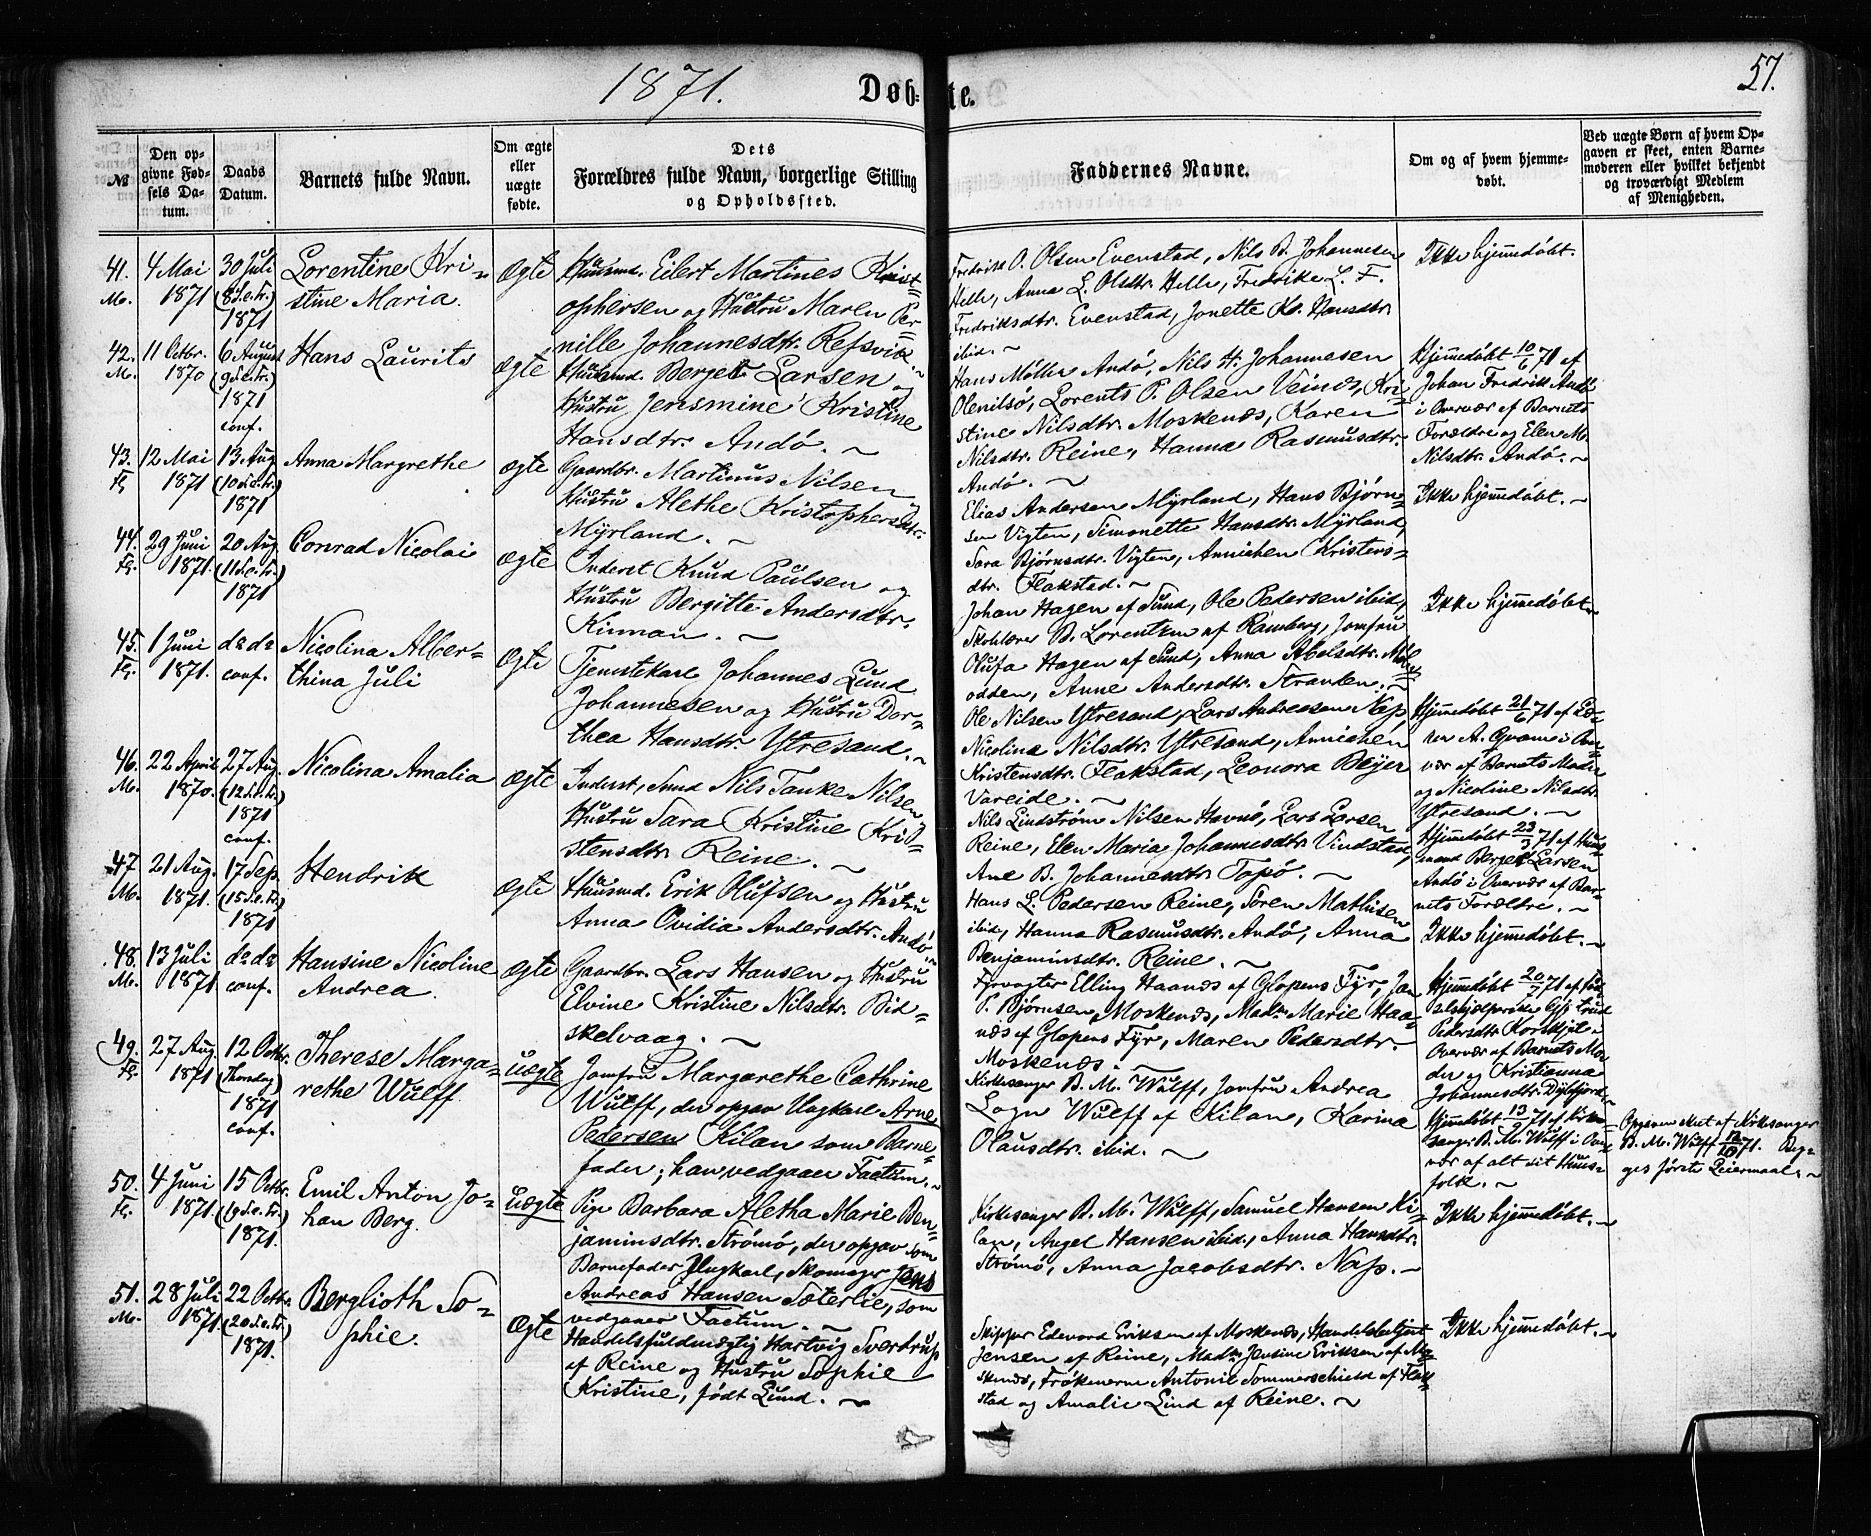 1871.
Døb-te.
57.
№
Den op-
givne Fød-
sels Da-
tum.
Daabs
Datum.
Barnets fulde Navn.
Om ægte
eller
uægte
fødte.
Dets
Forældres fulde Navn, borgerlige Stilling
og Opholdssted.
Faddernes Navne.
Om og af hvem hjemme-
døbt.
Ved uægte Børn af hvem Op-
gaven er skeet, enten Barne-
moderen eller hvilket bekjendt
og troværdigt Medlem
af Menigheden.
41.
Mo.
4 Mai
1871
30 Juli
(8 S.e.Tr.)
1871
Lorentine Kri-
stine Maria.
Ægte
Huusmd. Eilert Martines Krist-
ophersen og Hustru Maren Per-
nille Johannesdtr. Refsvik
Fredrik O. Olsen Evenstad, Nils B. Johannesen
Helle, Anna L. Olsdtr. Helle, Fredrikke L. F.
Fredriksdtr. Evenstad, Jonette Kr. Hansdtr.
ibid. ~
Ikke hjemmedøbt.
42.
M.
11 Octbr.
1870
6 August
(9 S.e.Tr.)
1871
conf.
Hans Laurits
Ægte
Huusmd. Berget Larsen og
Hustru Jensmine Kristine
Hansdtr. Andø. ~
Hans Møller Andø, Nils H. Johannesen
Olenilsø, Lorents P. Olsen Veines, Kri-
stine Nilsdtr. Moskenæs, Karen
Nilsdtr. Reine, Hanna Rasmusdtr.
Andø. ~
Hjemmedøbt 10/6 71 af
Johan Fredrik Andø
i Overvær af Barnets
Forældre og Elen M.
Nilsdtr. Andø. ~
43.
Fl.
12 Mai
1871
13 Aug.
(10 S.e.Tr.)
1871
Anna Margrethe
Ægte
Gaardbr. Martinus Nilsen
Hustru Alethe Kristophersdtr.
Myrland. ~
Elias Andersen Myrland, Hans Bjørn-
sen Vigten, Simonette Hansdtr. Myrland,
Sara Bjørnsdtr. Vigten, Annichen Kristens-
dtr. Flakstad. ~
Ikke hjemmedøbt. ~
44.
Fl.
29 Juni
1871.
20 Aug.
(11 S.e.Tr.)
1871
Conrad Nicolai
Ægte
Inderst Knud Paulsen og
Hustru Bergitte Andersdtr.
Kinnan. ~
Johan Hagen af Sund, Ole Pedersen ibid,
Skolelærer B. Lorentzen af Ramberg, Jomfru
Olufa Hagen af Sund, Anna Abelsdtr. Møl-
odden, Anne Andersdtr. Stranden. ~
Ikke hjemmedøbt.
45.
Fl.
1 Juni
1871.
do do
conf.
Nicolina Alber-
thina Juli
Ægte
Tjenestekarl Johannes Lund
Johannesen og Hustru Dor-
thea Hansdtr. Ytresand. ~
Ole Nilsen Ytresand, Lars Andreasen Næs,
Nicolina Nilsdtr. Ytresand, Annichen
Kristensdtr. Flakstad, Leonora Beyer
Vareide. ~
Hjemmedøbt 21/6 71 af
A. Qvam i Over-
vær af Barnets Moder
og Nicoline Nilsdtr.
Ytresand. ~
46.
M.
22 April
1870.
27 Aug.
(12 S.e.Tr.)
1871
conf.
Nicolina Amalia
Ægte
Inderst, Smed Nils Tanke Nilsen
Hustru Sara Kristine Kri-
stensdtr. Reine. ~
Nils Lindstrøm Nilsen Havnø, Lars Larsen
Reine, Elen Maria Johannesdtr. Vindstad,
Ane B. Johannesdtr. Topø. ~
Hjemmedøbt 23/3 71 af Huus-
mand Berget Larsen
Andø i Overvær af Bar-
nets Forældre. ~
47
M.
21 Aug.
1871.
17 Sep.
(15 S.e.Tr.)
1871
Hendrik
Ægte
Huusmd. Erik Olufsen og Hustru
Anna Ovidia Andersdtr. Andø
Hans L. Pedersen Reine, Søren Mathisen
ibid, Hanna Rasmusdtr. Andø, Anna
Benjaminsdtr. Reine. ~
Ikke hjemmedøbt. ~
48.
M.
13 Juli
1871
do do
conf.
Hansine Nicoline
Andrea.
Ægte
Gaardbr. Lars Hansen og Hustru
Elvine Kristine Nilsdtr. Bid-
skelvaag. ~
Fyrvogter Elling Haanæs af Glopens Fyr, Jan
P. Bjørnsen, Moskenæs, Madm Marie Haa-
næs af Glopens Fyr, Maren Pedersdtr.
Moskenæs.
Hjemmedøbt 20/7 71 af Fød-
selshjælperske Gjertrud
Pedersdtr. i
Overvær af Barnets Mo-
der og Kristianna
Johannesdtr. Dybfjord. ~
49.
Fl.
27 Aug.
1871
12 Octbr.
(Thorsdag)
1871
conf.
Therese Marga-
rethe Wulff.
uægte
Jomfru Margarethe Cathrine
Wulff, der opgav Ungkarl Arne
Pedersen Kilan som Barne-
fader; han vedgaaer Factum. ~
Kirkesanger B. M. Wulff, Jomfru Andrea
Logn Wulff af Kilan, Karina
Olausdtr. ibid. ~
Hjemmedøbt 13/9 71 af Kirke-
sanger B. M. Wulff i Over-
vær af alt sit Huus-
folk. ~
Opgaven skeet af Kirkesanger
B. M. Wulff 12/10 71. Beg-
ges første Leiermaal. ~
50.
Fl.
4 Juni
1871.
15 Octbr.
(19 S.e.Tr.)
1871.
Emil Anton Jo-
han Berg.
Uægte
Pige Barbara Aletha Marie Ben-
jaminsdtr. Strømø, der opgav som
Barnefader Ungkarl, Skomager Jens
Andreas Hansen Sæterlie, som
vedgaaer Factum. ~
Kirkesanger B. M. Wulff, Samuel Hansen Ki-
lan, Angel Hansen ibid., Anna Hansdtr.
Strømø, Anna Jacobsdtr. Næss. ~
Ikke hjemmedøbt. ~
51.
M.
28 Juli
1871.
22 Octbr.
(20 S.e.Tr.)
1871.
Berglioth So-
phie.
Ægte
Handelsfuldmægtig Hartvig Sverdrup
af Reine og Hustru Sophie
Kristine, født Lund. ~
Skipper Edevard Eriksen af Moskenæs, Handelsbetjent
Jensen af Reine, Madm Jensine Eriksen af Mo-
skenæs, Frøknerne Antonie Sommerschield af Flak-
stad og Amalie Lind af Reine. ~
Ikke hjemmedøbt. ~